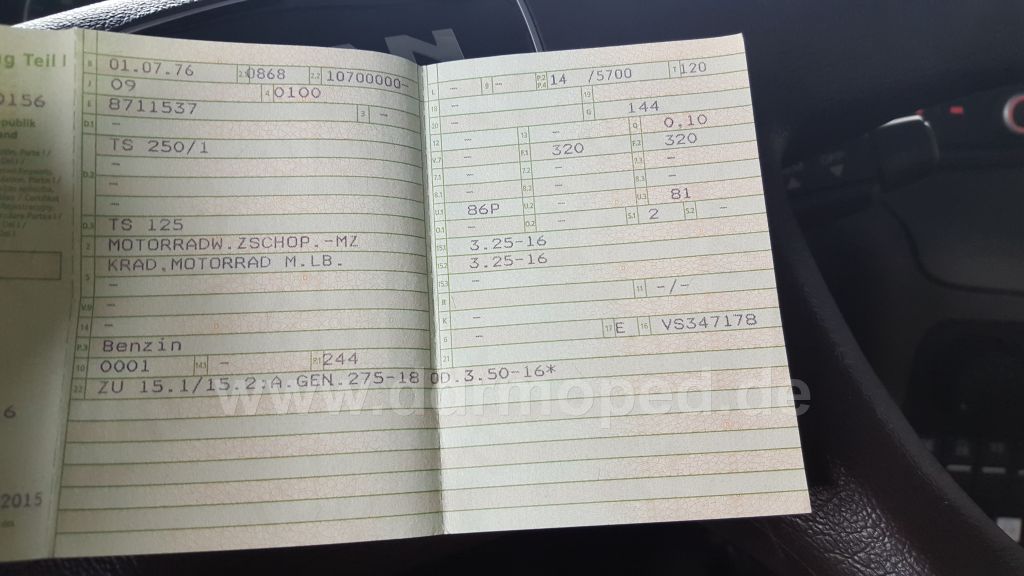 ug Teil I
0156
publik
and
6
2015
B 01.07.76 2.1 0868 2.2 10700000-
J 09 4 0100
E 8711537 3 -
D.1 -
TS 250/1
D.2 -
-
D.3 TS 125
2 MOTORRADW.ZSCHOP.-MZ
KRAD,MOTORRAD M.LB.
5 -
V.9 -
14 -
P.3 Benzin
10 0001 14.1 - P.1 244
22 ZU 15.1/15.2:A.GEN.275-18 OD.3.50-16*
L - 9 - P.2 P.4 14 /5700 T 120
18 - 19
20 - G 144
12 - 13 - Q 0,10
V.7 - F.1 320 F.2 320
7.1 - 7.2 - 7.3 -
8.1 - 8.2 - 8.3 -
U.1 86P U.2 - U.3 81
O.1 - O.2 - S.1 2 S.2 -
15.1 3.25-16
15.2 3.25-16
15.3 -
R 11 -/-
K -
6 - 17 E 16 VS347178
21
www.ddrmoped.de